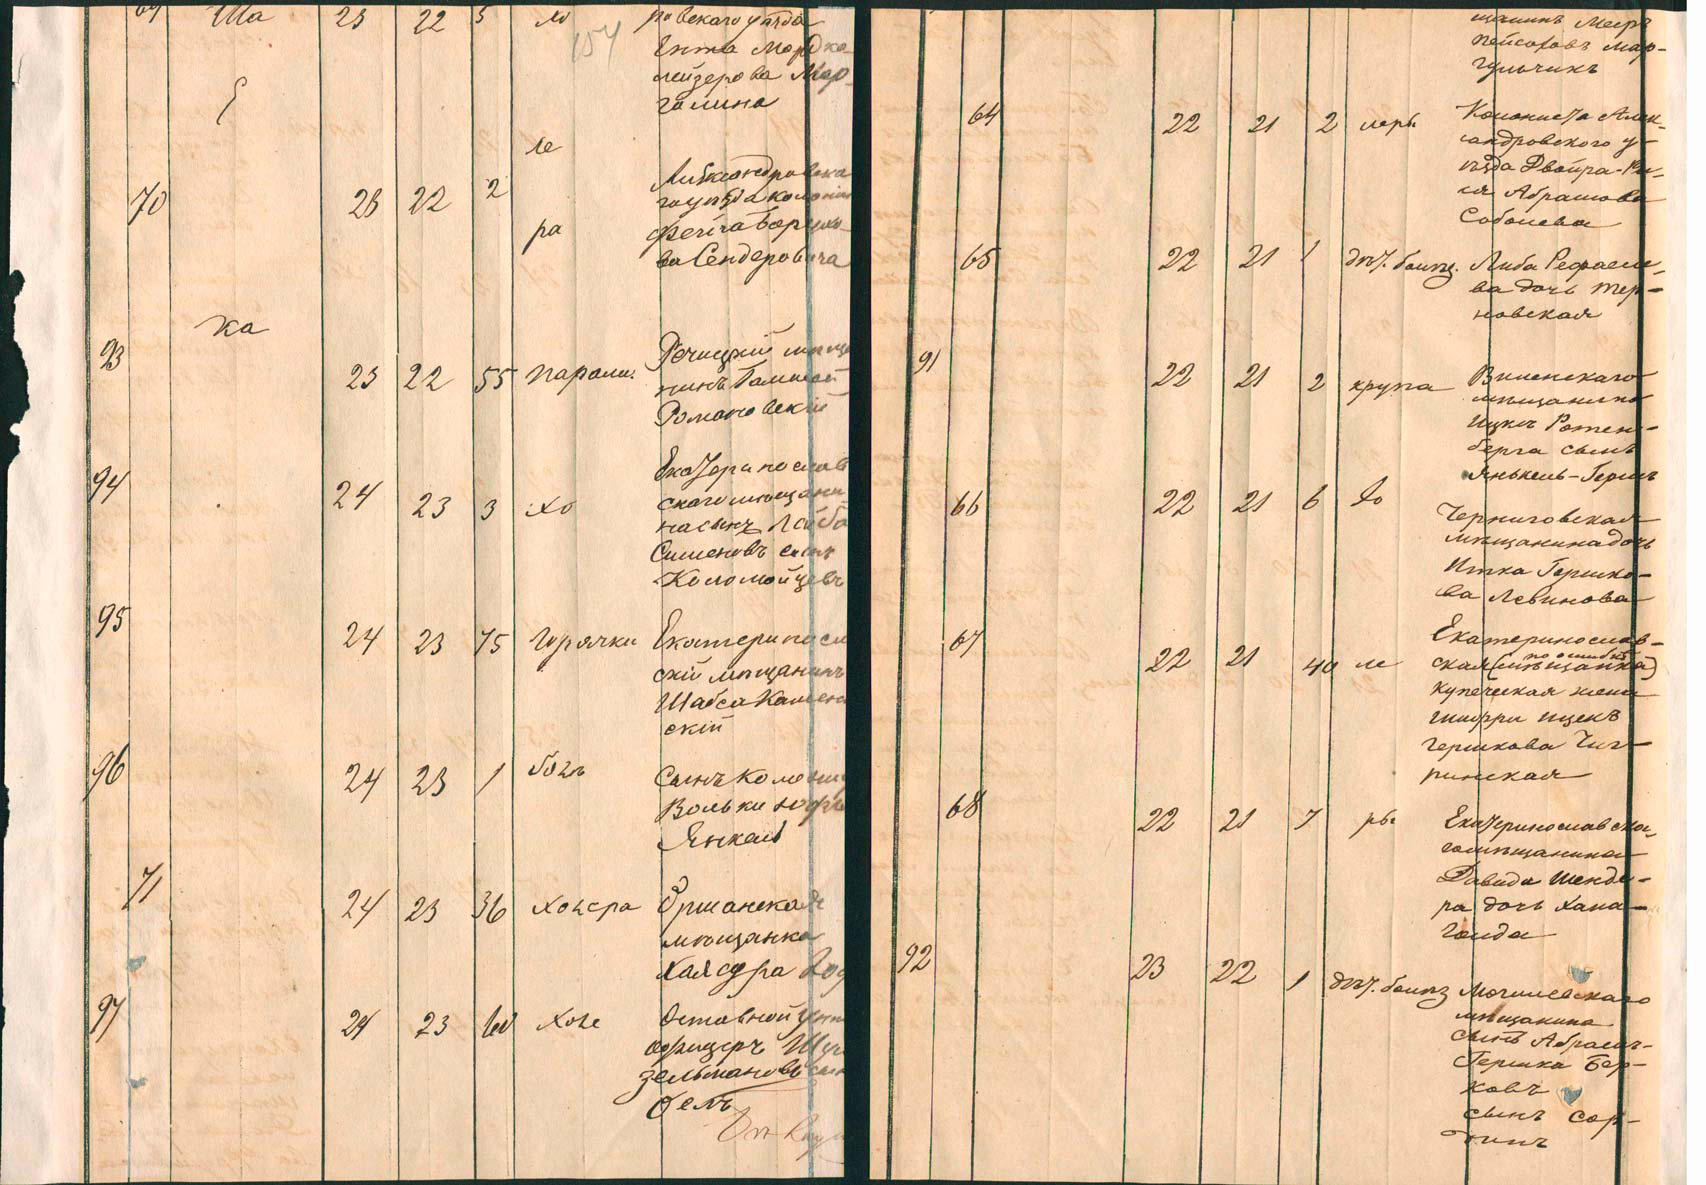 69 Ша 23 22 5 хо ровскаго уѣзда
154
Ента Мордка
лейзерова Мар-
голина
ле
70 26 22 2 Александровска
го уѣзда колонис
ра Фейга Борухо-
ва Сендеровича
ка
93 23 22 55 парали. Речицкій мѣща
нинъ
Романовскій
94 24 23 3 хо Екатеринослав
скаго мѣщани
на сынъ Лейба
Симоновъ сынъ
Коломойцевъ
95 24 23 75 горячки Екатеринослав
скій мѣщанинъ
Шабса Камен
скій
96 24 23 1 Сынъ
Вольки
Янкель
71 24 23 36 холера Оршанская
мѣщанка
Хая сура
97 24 23 60 холе Оставной унт
офицеръ
Зельмановъ сын

щанинъ Мееръ
Пейсаховъ Мар-
гульчикъ
64 22 21 2 леры Колониста Алек-
сандровскаго у-
ѣзда Двойра-
Абрамова
Соболева
65 22 21 1 дѣт. болѣз. Либа Рефаеле-
ва дочь Тер-
новская
91 22 21 2 крупа Виленскаго
мѣщанина
Ицки Ротен-
берга сынъ
Янькель-Герш
66 22 21 6 хо Черниговская
мѣщанина дочь
Итка Гершко-
ва Левинова
67 22 21 40 ле Екатеринослав-
ская (мѣщанка) по ошибкѣ
купеческая жена
гершкова Чиг-
ринская
68 22 21 7 ры Екатеринославска-
го мѣщанина
Давида Шенде-
ра дочь Хана-
голда
92 23 22 1 дѣт. болѣз Могилевскаго
мѣщанина
сынъ Абрамъ-
Гершка Бер-
ковъ
сынъ Сор-